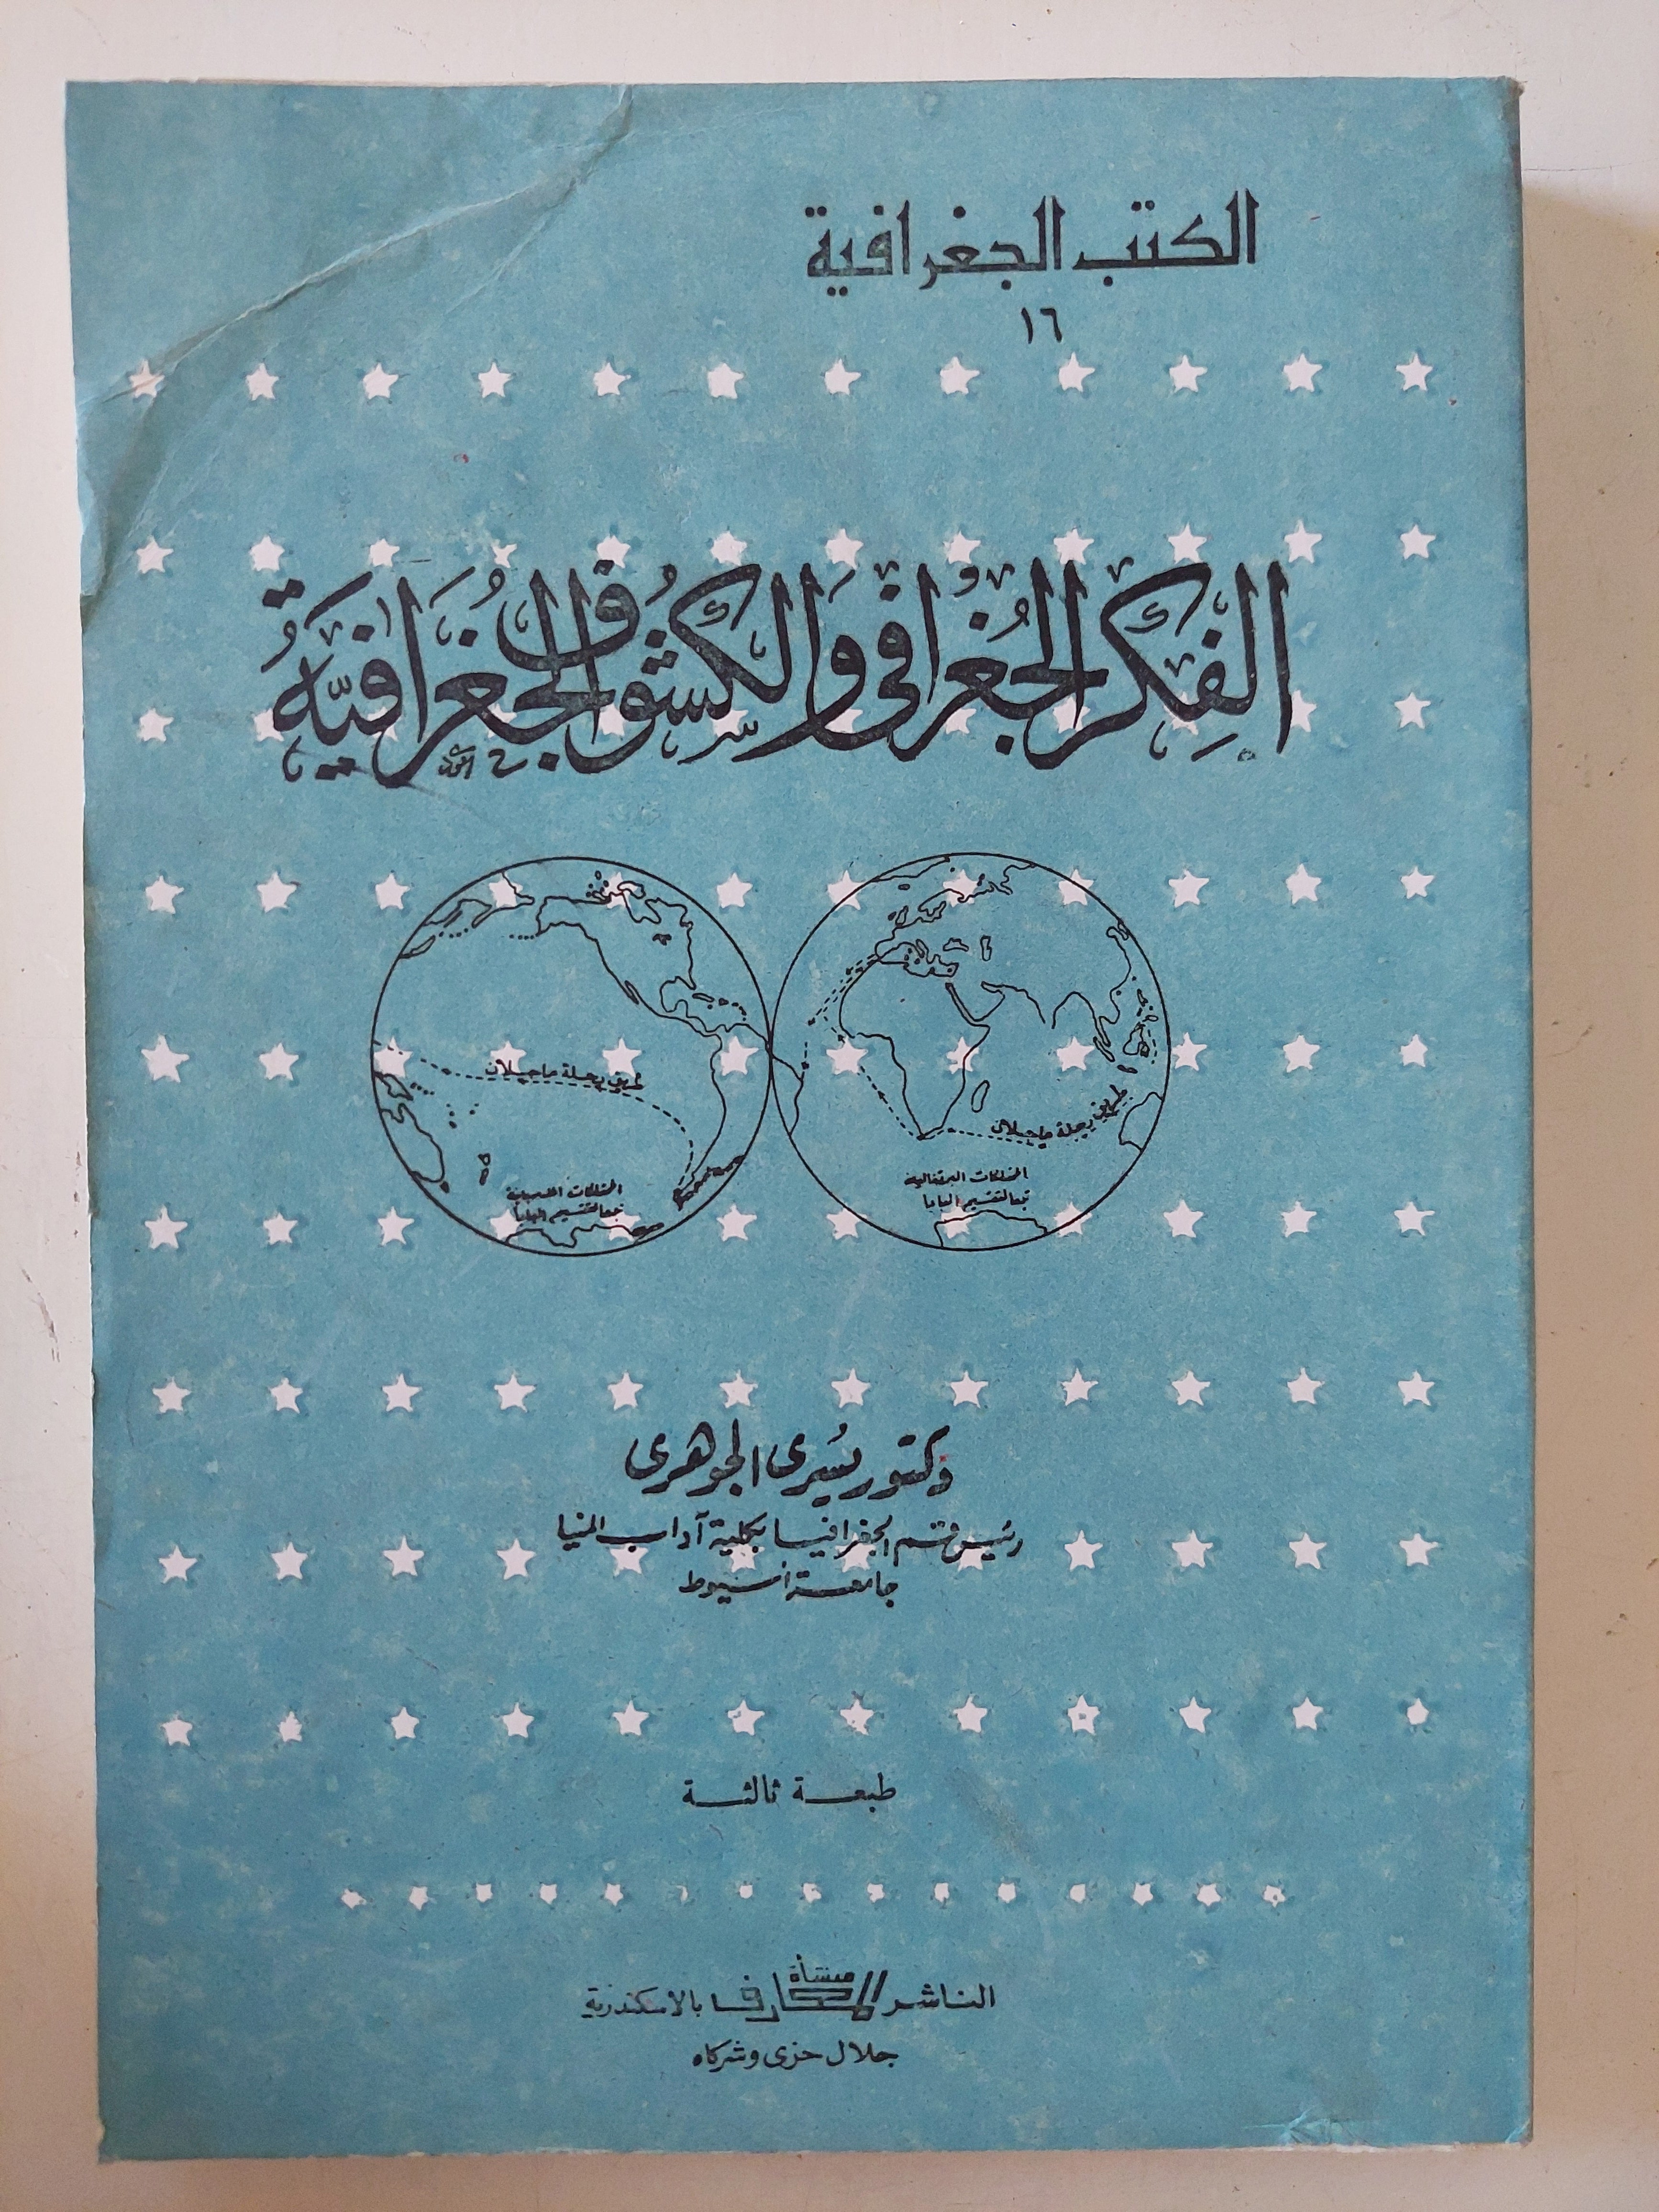 الكتب الجغرافية
١٦
الفِكر الجُغرافى وَالكشُوف الجُغَرافيّةُ
طريق رحلة ماجيلان
طريق رحلة ماجيلان
الممتلكات البرتغالية
تبعا لتقسيم البابا
الممتلكات
تبعا لتقسيم البابا
دكتور يُسرى الجوهرى
رئيس قسم الجغرافيا بكلية آداب المنيا
جامعة أسيوط
طبعة ثالثة
الناشر منشأة المعارف بالاسكندرية
جلال حزى وشركاه